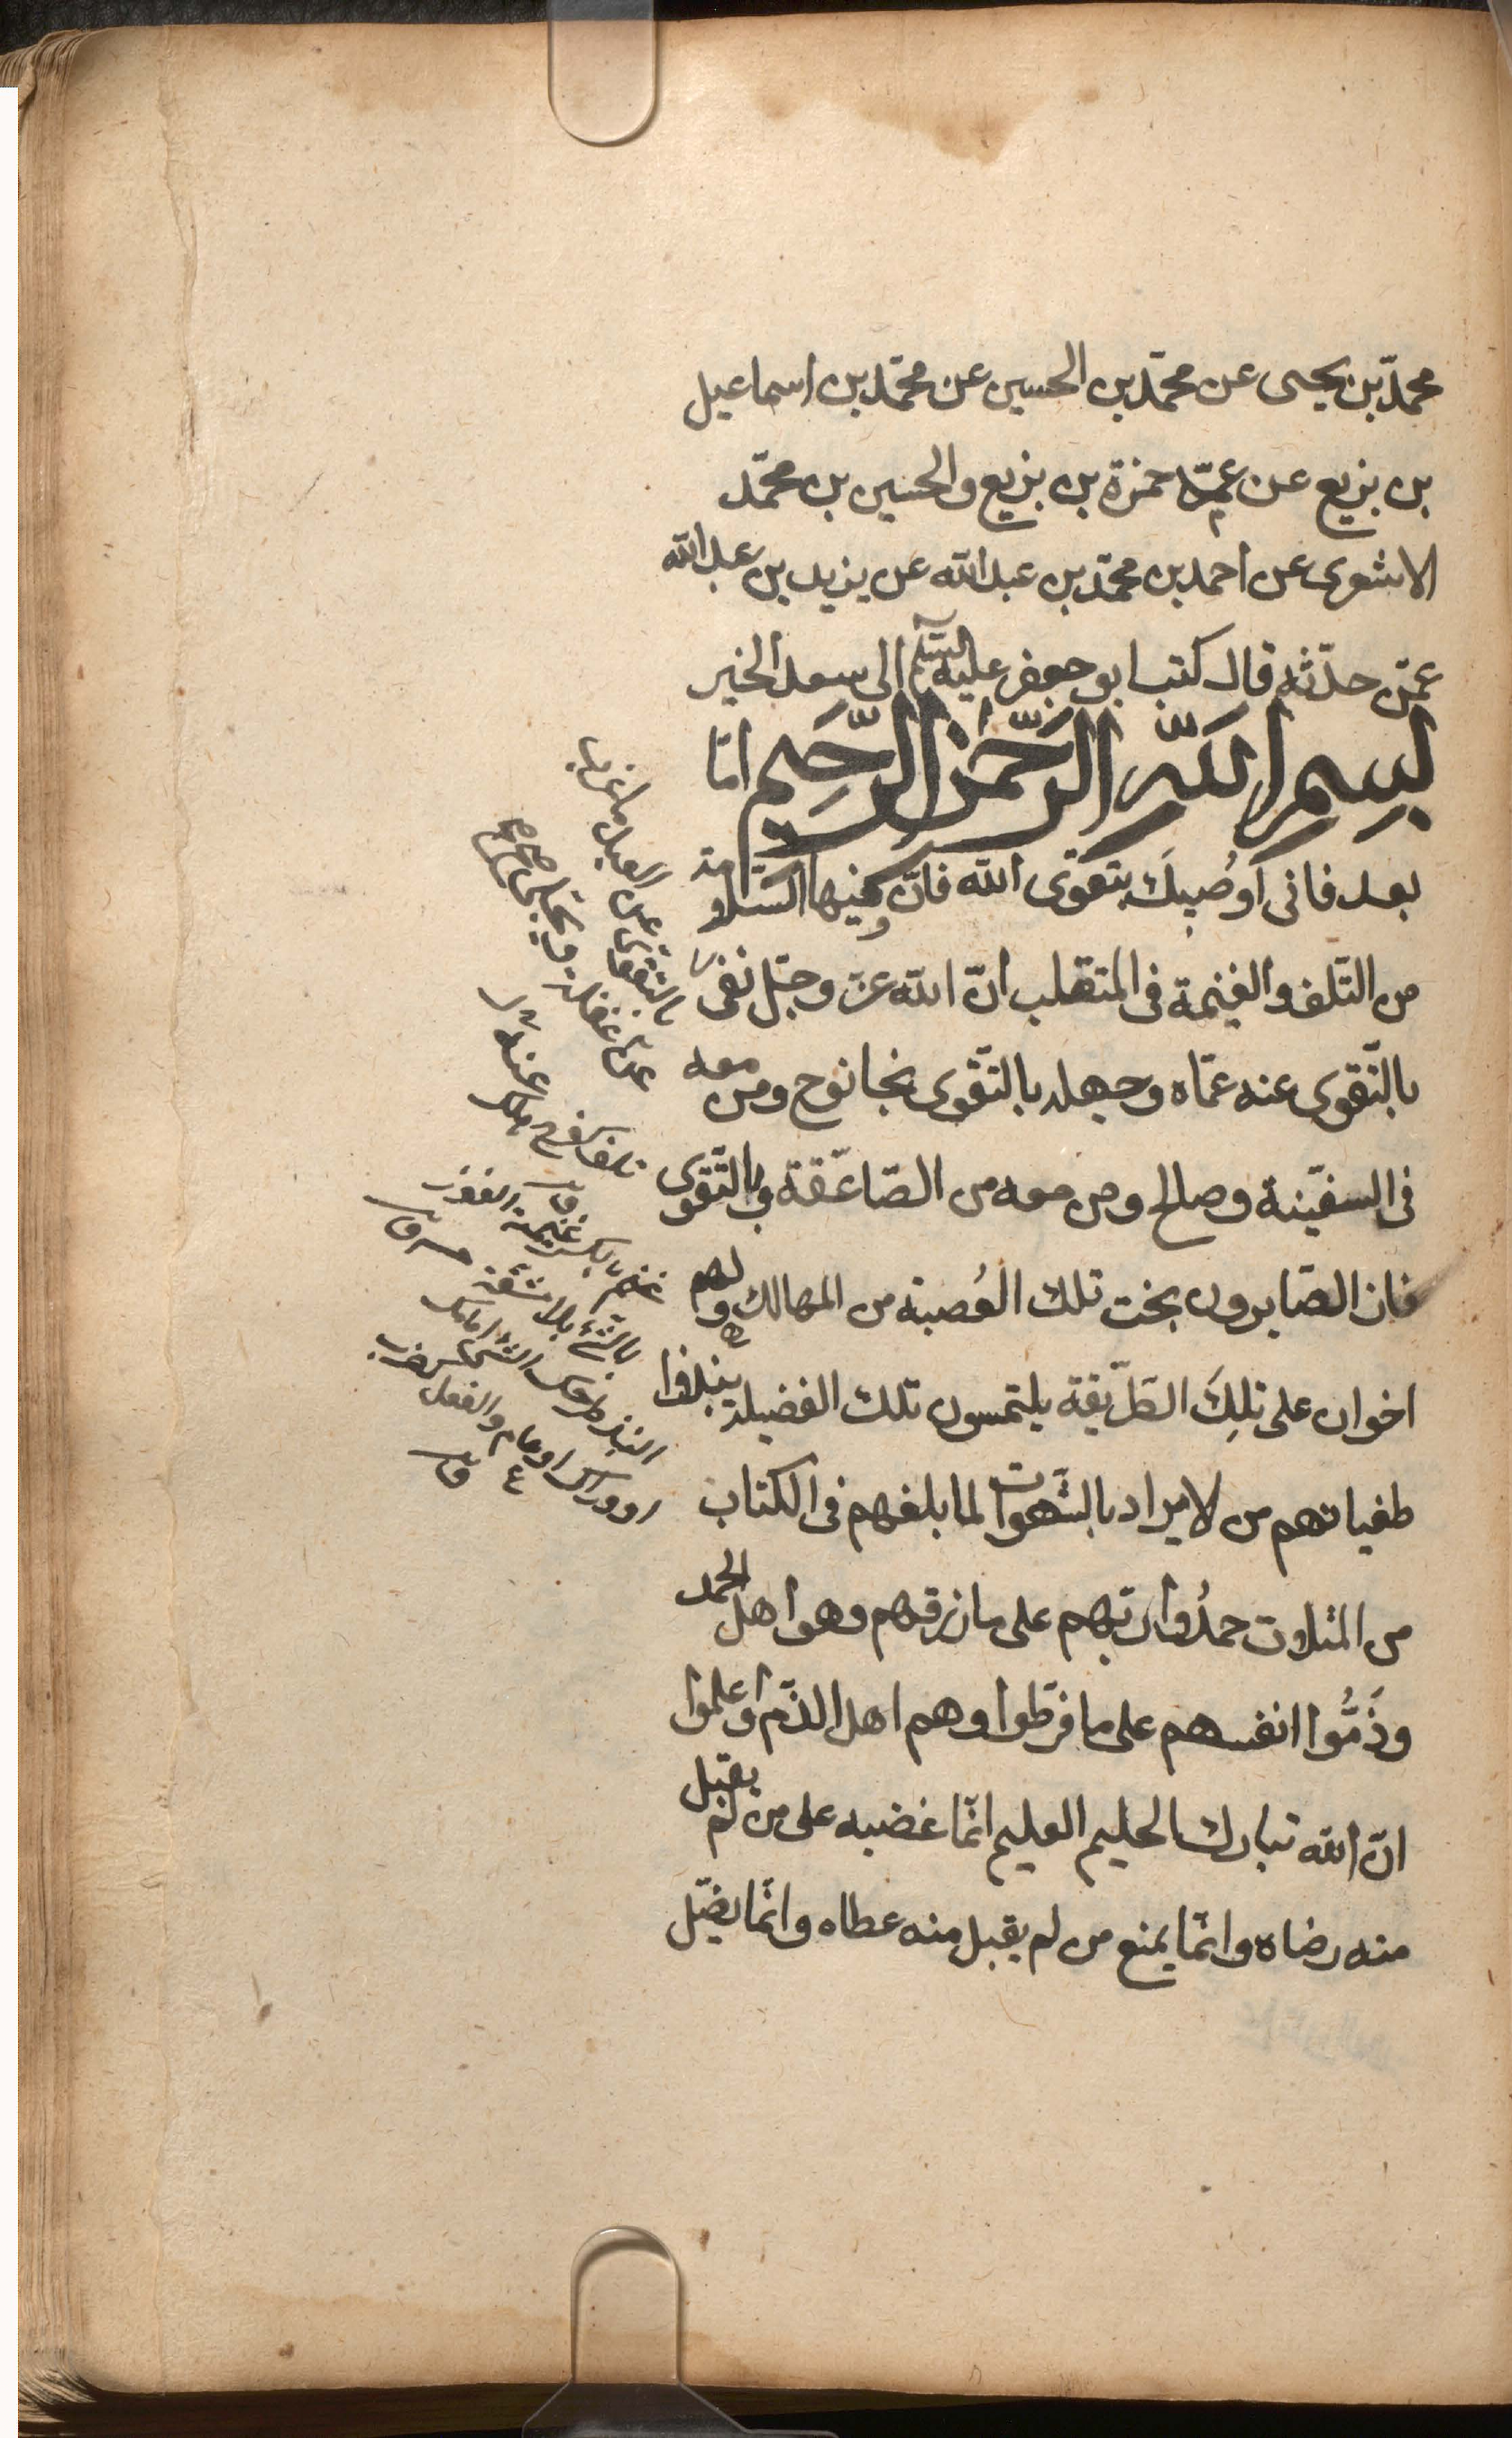 محمّد بن يحيى عن محمّد بن الحسين عن محمّد بن اسماعيل
بن بزيع عن عمّه حمزة بن بزيع والحسين بن محمّد
الاشعرى عن احمد بن محمّد بن عبدالله عن يزيد بن عبدالله
عمّن حدّثه قال كتب ابو جعفر عليه السّلم الى سعد الخير
بسم الله الرّحمن الرّحيم امّا
بعد فانى اوُصيكَ بتقوى الله فانّ فيها السّلامة
من التّلف والغنيمة فى المنقلب انّ الله عزّ وجلّ نفى
بالتّقوى عنه عماه وجهله بالتّقوى نجا نوح ومن معه
فى السفينة وصالح ومن معه من الصّاعقة وبالتّقوى
فاز الصّابرون نجت تلك العُصبة من المهالك ولهم
اخوان على تلِكَ الطّريقة يلتمسون تلك الفضيلة ينبذوا
طغيانهم من لايراد بالشّهوات لما بلغهم فى الكتاب
من المثلات حمدُوا ربّهم على ما رزقهم وهو اهل الحمد
وذَمُّوا انفسهم على ما فرّطوا وهم اهل الذّم واعلموا
انّ الله تبارك الحليم العليم انّما غضبه على من لم يقبل
منه رضاه وانّما يمنع من لم يقبل منه عطاه وانّما يضلّ
بالتقوى عن العبد ما عزب
عنه عقله
تلف كفرح هلك
غنم بالكسر غنيمة الفوز
بالشّئ بلا مشقة ق
النبذ طرحك الشّئ امامك
او وراك او عام والفعل كضرب
ق